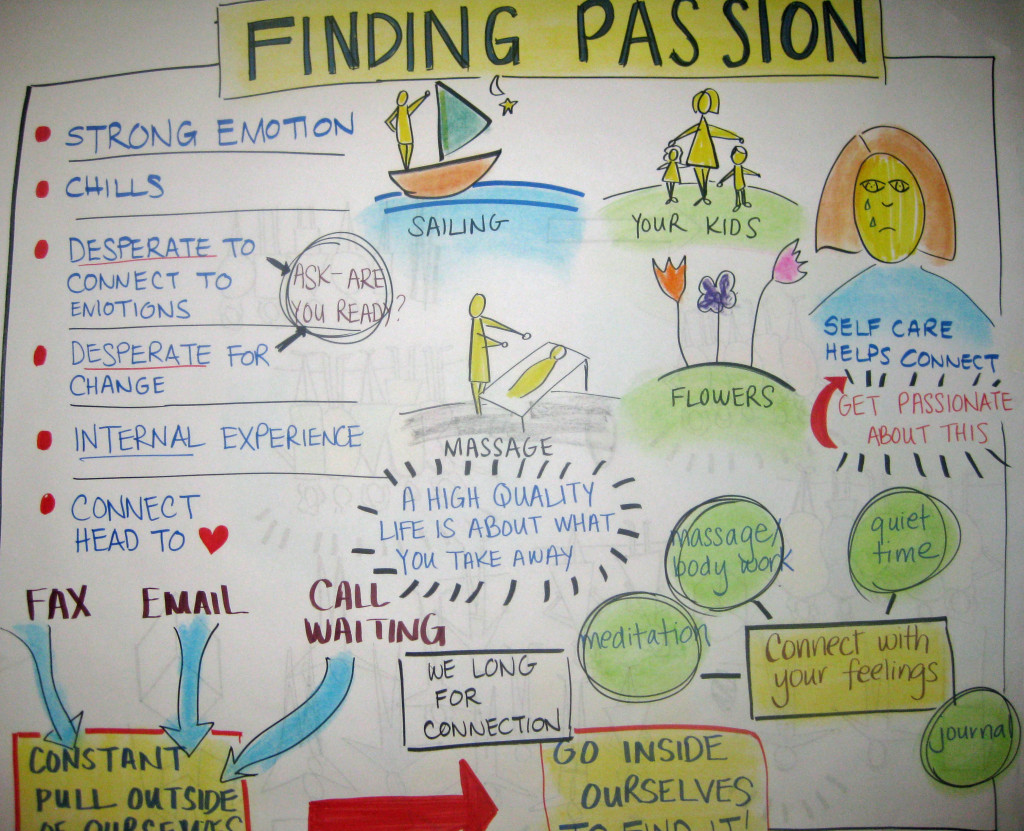 FINDING PASSION
STRONG EMOTION
CHILLS
DESPERATE TO
CONNECT TO
EMOTIONS
DESPERATE FOR
CHANGE
ASK-ARE
YOU READY?
INTERNAL EXPERIENCE
CONNECT
HEAD TO
SAILING
YOUR KIDS
MASSAGE
FLOWERS
SELF CARE
HELPS CONNECT
GET PASSIONATE
ABOUT THIS
A HIGH QUALITY
LIFE IS ABOUT WHAT
YOU TAKE AWAY
FAX
EMAIL
CALL
WAITING
CONSTANT
PULL OUTSIDE
OF OURSELVES
WE LONG
FOR
CONNECTION
GO INSIDE
OURSELVES
TO FIND IT!
massage/
body work
quiet
time
meditation
Connect with
your feelings
journal